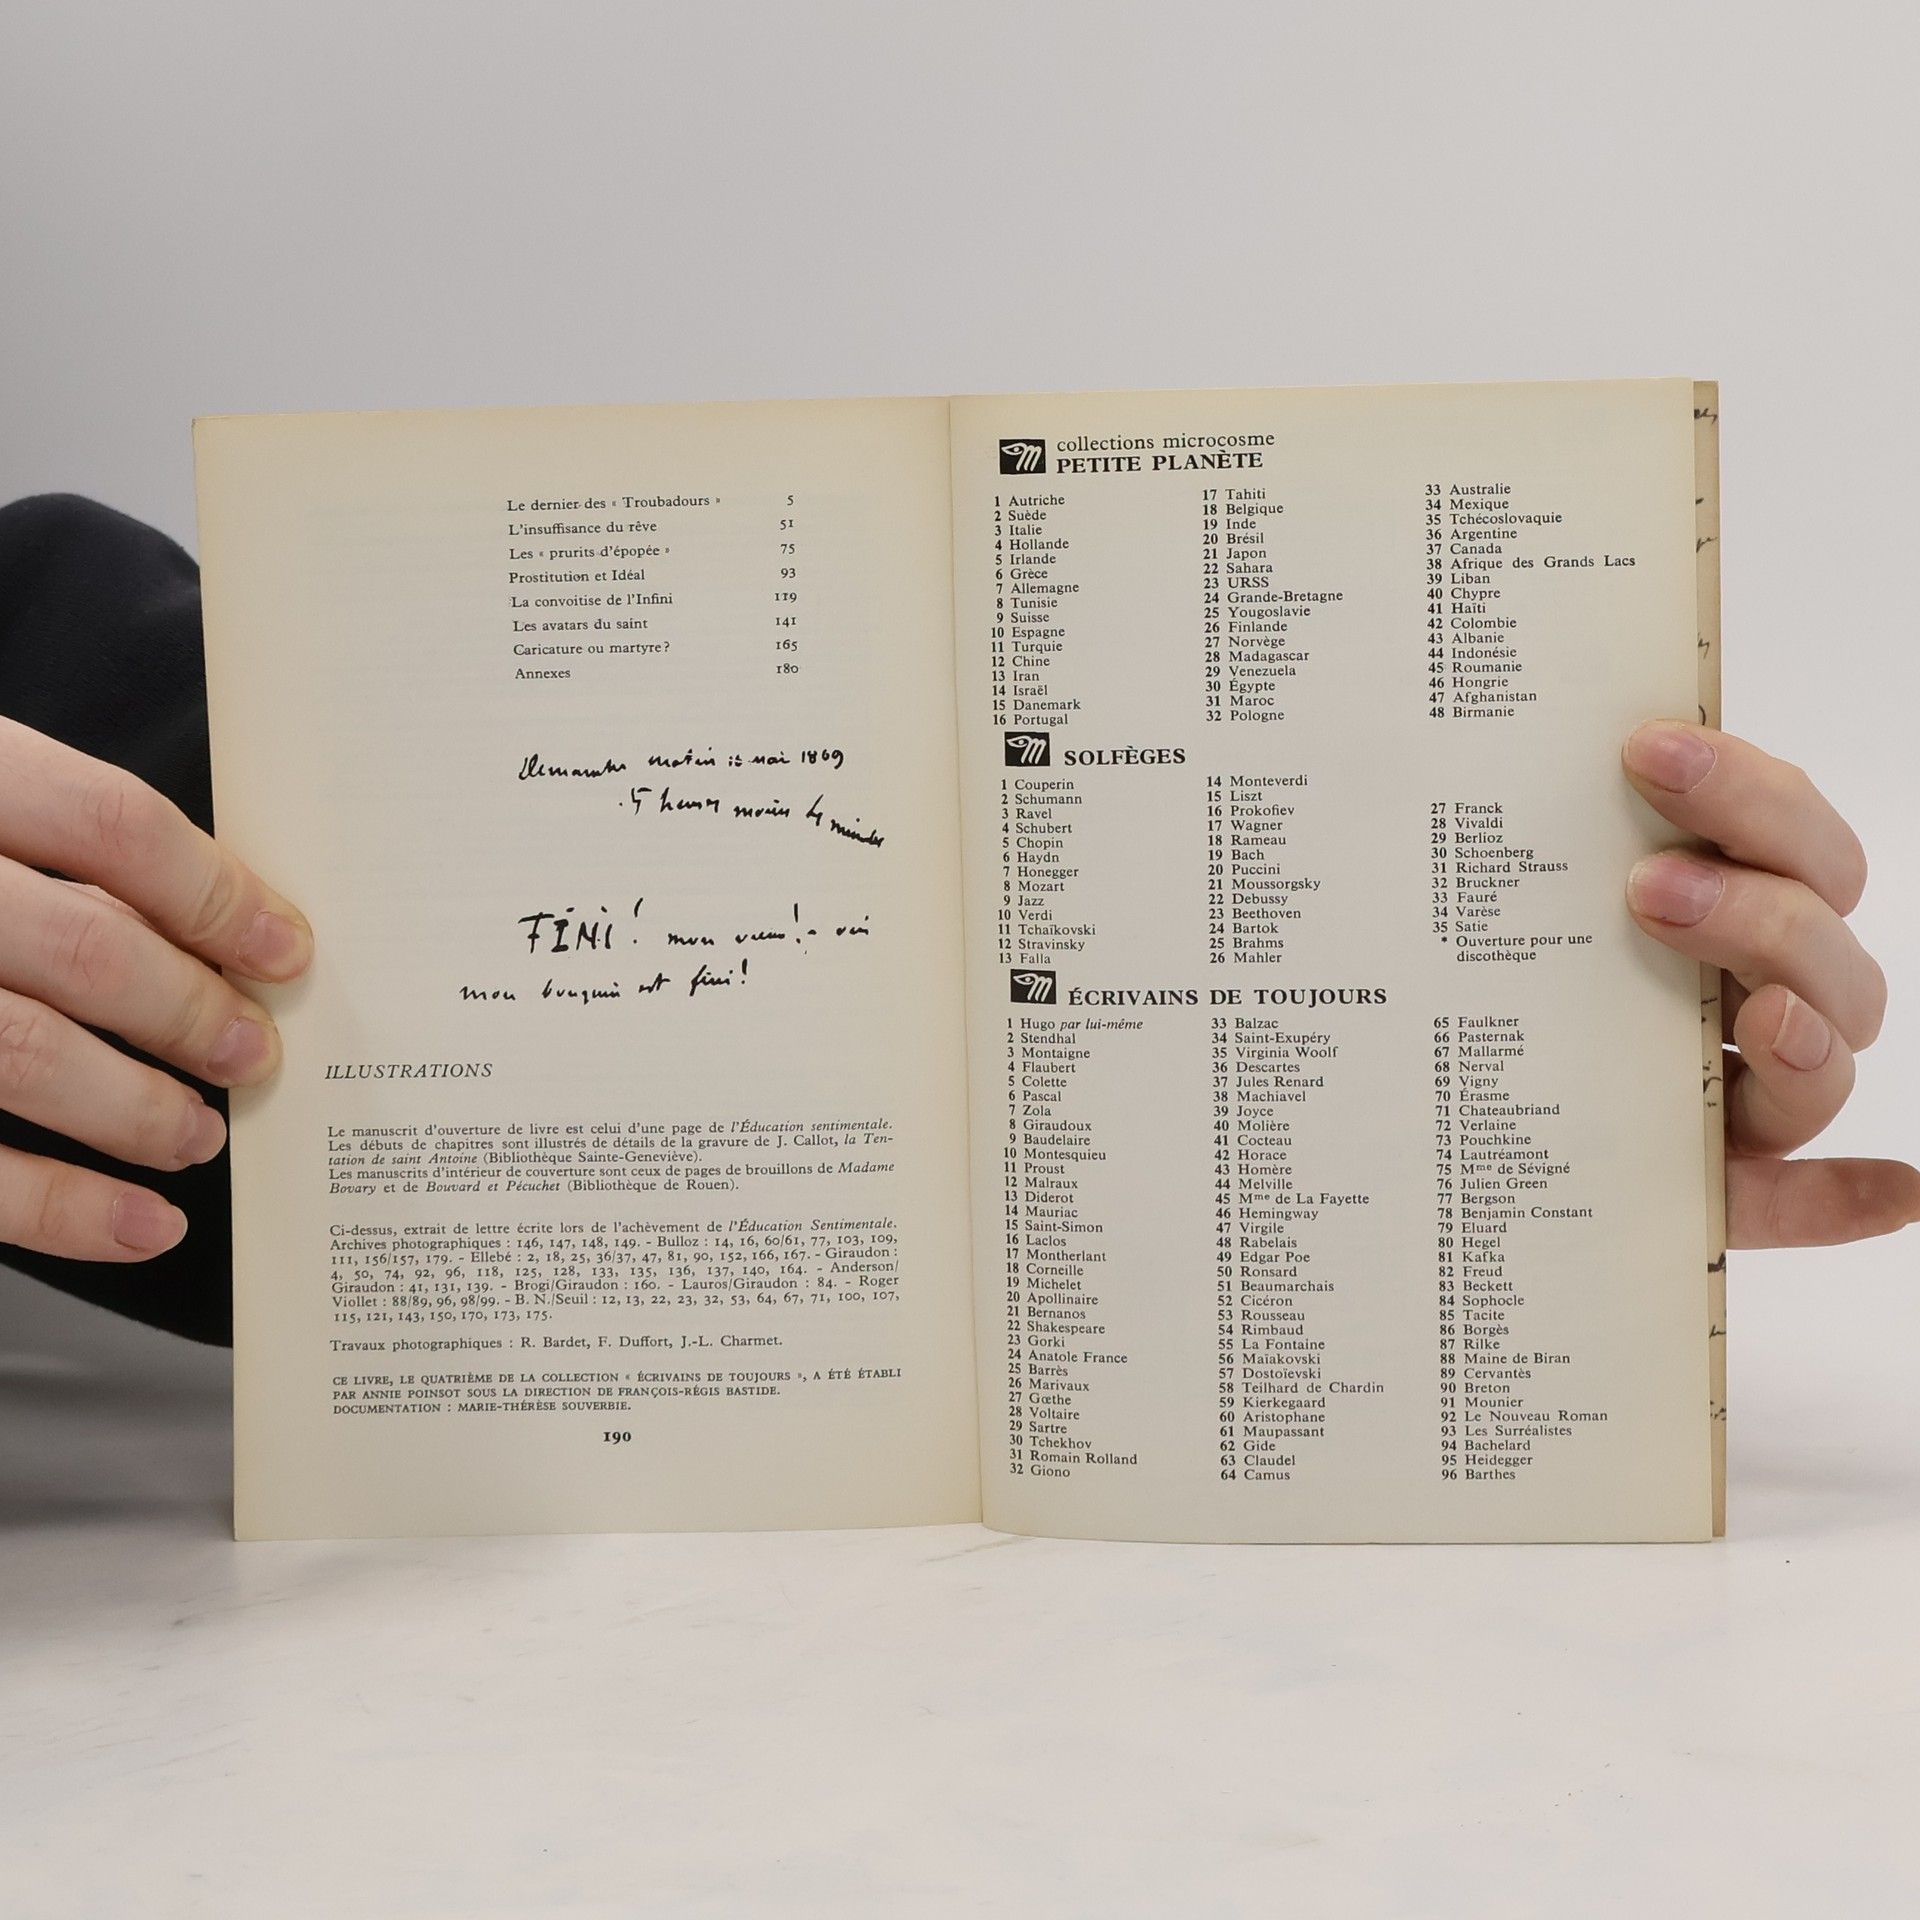 Le dernier des « Troubadours » 5
L'insuffisance du rêve 51
Les « prurits d'épopée » 75
Prostitution et Idéal 93
La convoitise de l'Infini 119
Les avatars du saint 141
Caricature ou martyre? 165
Annexes 180
matin mai 1869
5 heures moins 4 minutes
FINI! mon vieux! - oui
mon bouquin est fini!
ILLUSTRATIONS
Le manuscrit d'ouverture de livre est celui d'une page de l'Éducation sentimentale.
Les débuts de chapitres sont illustrés de détails de la gravure de J. Callot, la Ten-
tation de saint Antoine (Bibliothèque Sainte-Geneviève).
Les manuscrits d'intérieur de couverture sont ceux de pages de brouillons de Madame
Bovary et de Bouvard et Pécuchet (Bibliothèque de Rouen).
Ci-dessus, extrait de lettre écrite lors de l'achèvement de l'Éducation Sentimentale.
Archives photographiques : 146, 147, 148, 149. - Bulloz : 14, 16, 60/61, 77, 103, 109,
111, 156/157, 179. - Ellebé : 2, 18, 25, 36/37, 47, 81, 90, 152, 166, 167. - Giraudon :
4, 50, 74, 92, 96, 118, 125, 128, 133, 135, 136, 137, 140, 164. - Anderson/
Giraudon : 41, 131, 139. - Brogi/Giraudon : 160. - Lauros/Giraudon : 84. - Roger
Viollet : 88/89, 96, 98/99. - B. N./Seuil : 12, 13, 22, 23, 32, 53, 64, 67, 71, 100, 107,
115, 121, 143, 150, 170, 173, 175.
Travaux photographiques : R. Bardet, F. Duffort, J.-L. Charmet.
CE LIVRE, LE QUATRIÈME DE LA COLLECTION « ÉCRIVAINS DE TOUJOURS », A ÉTÉ ÉTABLI
PAR ANNIE POINSOT SOUS LA DIRECTION DE FRANÇOIS-RÉGIS BASTIDE.
DOCUMENTATION : MARIE-THÉRÈSE SOUVERBIE.
190
collections microcosme
PETITE PLANÈTE
1 Autriche
2 Suède
3 Italie
4 Hollande
5 Irlande
6 Grèce
7 Allemagne
8 Tunisie
9 Suisse
10 Espagne
11 Turquie
12 Chine
13 Iran
14 Israël
15 Danemark
16 Portugal
17 Tahiti
18 Belgique
19 Inde
20 Brésil
21 Japon
22 Sahara
23 URSS
24 Grande-Bretagne
25 Yougoslavie
26 Finlande
27 Norvège
28 Madagascar
29 Venezuela
30 Égypte
31 Maroc
32 Pologne
33 Australie
34 Mexique
35 Tchécoslovaquie
36 Argentine
37 Canada
38 Afrique des Grands Lacs
39 Liban
40 Chypre
41 Haïti
42 Colombie
43 Albanie
44 Indonésie
45 Roumanie
46 Hongrie
47 Afghanistan
48 Birmanie
SOLFÈGES
1 Couperin
2 Schumann
3 Ravel
4 Schubert
5 Chopin
6 Haydn
7 Honegger
8 Mozart
9 Jazz
10 Verdi
11 Tchaïkovski
12 Stravinsky
13 Falla
14 Monteverdi
15 Liszt
16 Prokofiev
17 Wagner
18 Rameau
19 Bach
20 Puccini
21 Moussorgsky
22 Debussy
23 Beethoven
24 Bartok
25 Brahms
26 Mahler
27 Franck
28 Vivaldi
29 Berlioz
30 Schoenberg
31 Richard Strauss
32 Bruckner
33 Fauré
34 Varèse
35 Satie
* Ouverture pour une
discothèque
ÉCRIVAINS DE TOUJOURS
1 Hugo par lui-même
2 Stendhal
3 Montaigne
4 Flaubert
5 Colette
6 Pascal
7 Zola
8 Giraudoux
9 Baudelaire
10 Montesquieu
11 Proust
12 Malraux
13 Diderot
14 Mauriac
15 Saint-Simon
16 Laclos
17 Montherlant
18 Corneille
19 Michelet
20 Apollinaire
21 Bernanos
22 Shakespeare
23 Gorki
24 Anatole France
25 Barrès
26 Marivaux
27 Gœthe
28 Voltaire
29 Sartre
30 Tchekhov
31 Romain Rolland
32 Giono
33 Balzac
34 Saint-Exupéry
35 Virginia Woolf
36 Descartes
37 Jules Renard
38 Machiavel
39 Joyce
40 Molière
41 Cocteau
42 Horace
43 Homère
44 Melville
45 Mme de La Fayette
46 Hemingway
47 Virgile
48 Rabelais
49 Edgar Poe
50 Ronsard
51 Beaumarchais
52 Cicéron
53 Rousseau
54 Rimbaud
55 La Fontaine
56 Maïakovski
57 Dostoïevski
58 Teilhard de Chardin
59 Kierkegaard
60 Aristophane
61 Maupassant
62 Gide
63 Claudel
64 Camus
65 Faulkner
66 Pasternak
67 Mallarmé
68 Nerval
69 Vigny
70 Érasme
71 Chateaubriand
72 Verlaine
73 Pouchkine
74 Lautréamont
75 Mme de Sévigné
76 Julien Green
77 Bergson
78 Benjamin Constant
79 Eluard
80 Hegel
81 Kafka
82 Freud
83 Beckett
84 Sophocle
85 Tacite
86 Borgès
87 Rilke
88 Maine de Biran
89 Cervantès
90 Breton
91 Mounier
92 Le Nouveau Roman
93 Les Surréalistes
94 Bachelard
95 Heidegger
96 Barthes